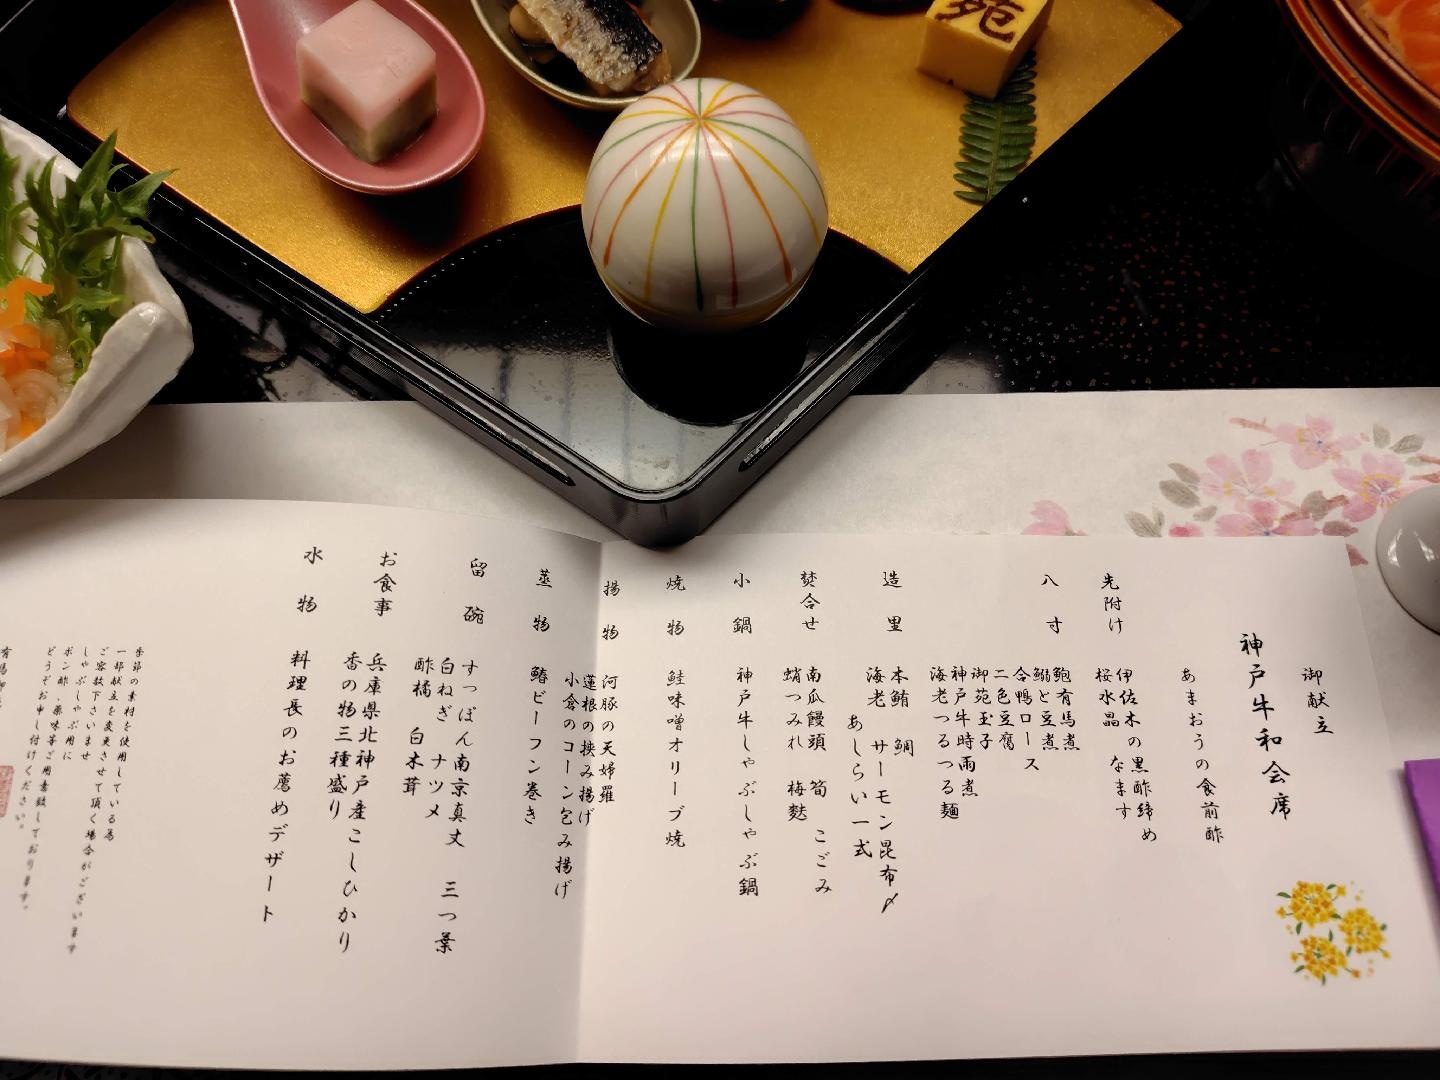 苑
御献立
神戸牛和会席
あまおうの食前酢
先附け
伊佐木の黒酢締め
桜水晶 なます
八寸
鮑有馬煮
鰯と豆煮
合鴨ロース
二色豆腐
御苑玉子
神戸牛時雨煮
海老つるつる麺
造里
本鮪 鯛 サーモン昆布〆
海老 あしらい一式
焚合せ
南瓜饅頭 筍 こごみ
蛸つみれ 梅麩
小鍋
神戸牛しゃぶしゃぶ鍋
焼物
鮭味噌オリーブ焼
揚物
河豚の天婦羅
蓮根の挟み揚げ
小倉のコーン包み揚げ
蒸物
鰆ビーフン巻き
留碗
すっぽん南京真丈 三つ葉
白ねぎ ナツメ
酢橘 白木茸
お食事
兵庫県北神戸産こしひかり
香の物三種盛り
水物
料理長のお薦めデザート
季節の素材を使用している為
一部献立を変更させて頂く場合がございます
ご容赦下さいませ
しゃぶしゃぶ用に
ポン酢、薬味等ご用意致しております。
どうぞお申し付けください。